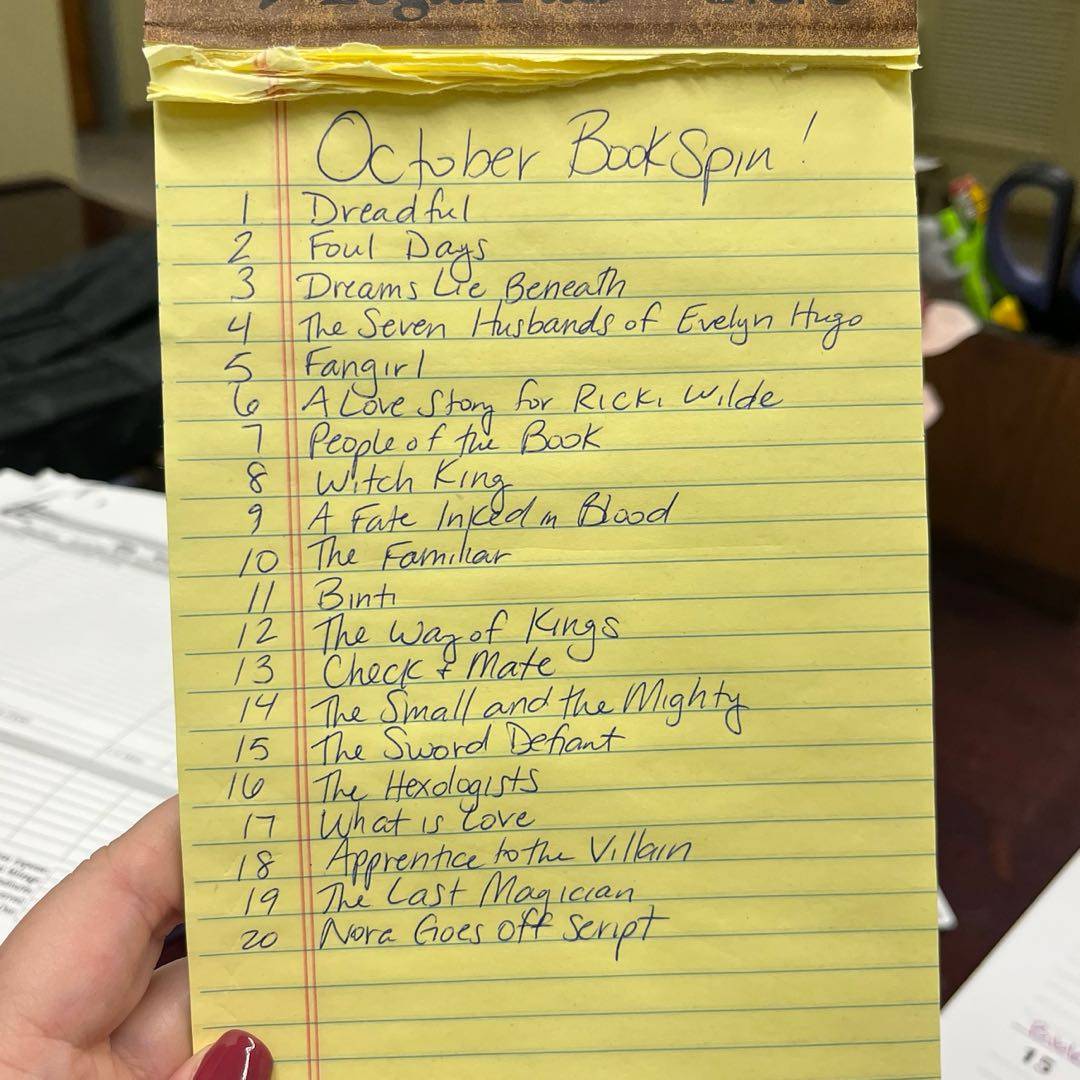 October BookSpin!
1 Dreadful
2 Foul Days
3 Dreams Lie Beneath
4 The Seven Husbands of Evelyn Hugo
5 Fangirl
6 A Love Story for Ricki Wilde
7 People of the Book
8 Witch King
9 A Fate Inked in Blood
10 The Familiar
11 Binti
12 The Way of Kings
13 Check & Mate
14 The Small and the Mighty
15 The Sword Defiant
16 The Hexologists
17 What is Love
18 Apprentice to the Villain
19 The Last Magician
20 Nora Goes Off Script
15